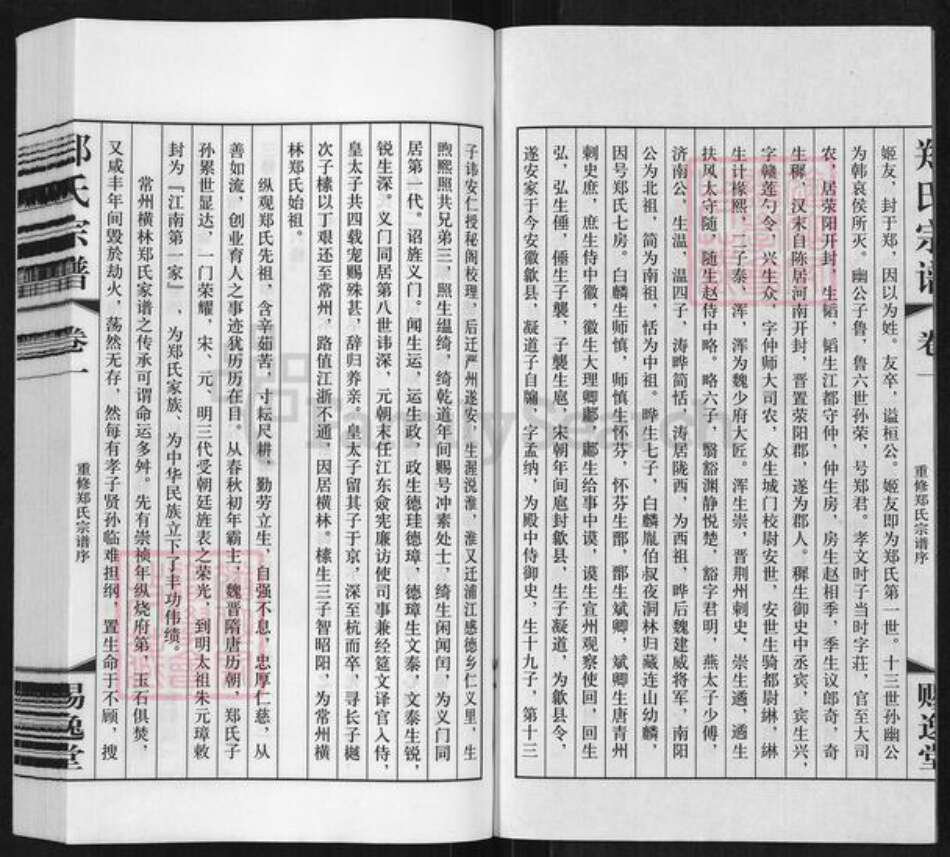 郑氏宗谱
卷一
重修郑氏宗谱序
赐逸堂
姬友，封于郑，因以为姓。友卒，谥桓公。姬友即为郑氏第一世。十三世孙幽公
为韩哀侯所灭。幽公子鲁，鲁六世孙荣，号郑君。孝文时子当时字庄，官至大司
农，居荥阳开封，生韬，韬生江都守仲，仲生房，房生赵相季，季生议郎奇，奇
生穉，汉末自陈居河南开封，晋置荥阳郡，遂为郡人。穉生御史中丞宾，宾生兴，
字赣莲勺令，兴生众，字仲师大司农，众生城门校尉安世，安世生骑都尉綝，綝
生计椽熙，二子泰、浑，浑为魏少府大匠。浑生崇，晋荆州刺史，崇生遹，遹生
扶风太守随，随生赵侍中略。略六子，翳豁渊静悦楚，豁字君明，燕太子少傅，
济南公，生温，温四子，涛晔简恬，涛居陇西，为西祖，晔后魏建威将军，南阳
公为北祖，简为南祖，恬为中祖。晔生七子，白麟胤伯叔夜洞林归藏连山幼麟，
因号郑氏七房。白麟生师慎，师慎生怀芬，怀芬生鄑，鄑生斌卿，斌卿生唐青州
刺史庶，庶生侍中徽，徽生大理卿郦，郦生给事中谟，谟生宣州观察使回，回生
弘，弘生倕，倕生子袭，子袭生扈，宋朝年间扈封歙县，生子凝道，为歙县令，
遂安家于今安徽歙县，凝道子自牖，字孟纳，为殿中侍御史，生十九子，第十三
子讳安仁授秘阁校理，后迁严州遂安，生渥浣淮，淮又迁浦江感德乡仁义里，生
煦熙照共兄弟三，照生缊绮，绮乾道年间赐号冲素处士，绮生闲闻闰，为义门同
居第一代。诏旌义门。闻生运，运生政，政生德珪德璋，德璋生文泰，文泰生锐，
锐生深。义门同居第八世讳深，元朝末任江东佥宪廉访使司事兼经筵文译官入侍，
皇太子共四载宠赐殊甚，辞归养亲。皇太子留其子于京，深至杭而卒，寻长子樾
次子榡以丁艰还至常州，路值江浙不通，因居横林。榡生三子智昭阳，为常州横
林郑氏始祖。
纵观郑氏先祖，含辛茹苦，寸耘尺耕，勤劳立生，自强不息，忠厚仁慈，从
善如流，创业育人之事迹犹历历在目。从春秋初年霸主，魏晋隋唐历朝，郑氏子
孙累世显达，一门荣耀，宋、元、明三代受朝廷旌表之荣光，到明太祖朱元璋敕
封为『江南第一家』，为郑氏家族、为中华民族立下了丰功伟绩。
常州横林郑氏家谱之传承可谓命运多舛。先有崇祯年纵烧府第，玉石俱焚，
又咸丰年间毁於劫火，荡然无存，然每有孝子贤孙临难担纲，置生命于不顾，搜
郑氏宗谱
卷一
重修郑氏宗谱序
赐逸堂